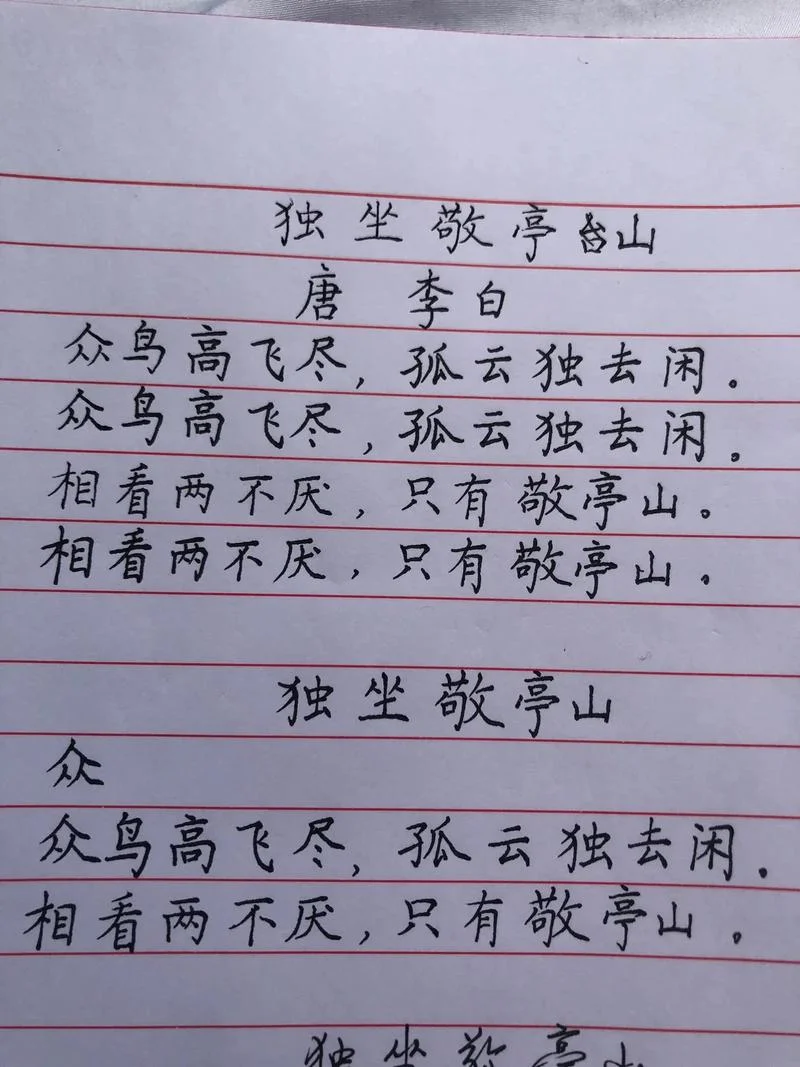 独坐敬亭山
唐 李白
众鸟高飞尽，孤云独去闲。
众鸟高飞尽，孤云独去闲。
相看两不厌，只有敬亭山。
相看两不厌，只有敬亭山。
独坐敬亭山
众
众鸟高飞尽，孤云独去闲。
相看两不厌，只有敬亭山。
独坐敬亭山